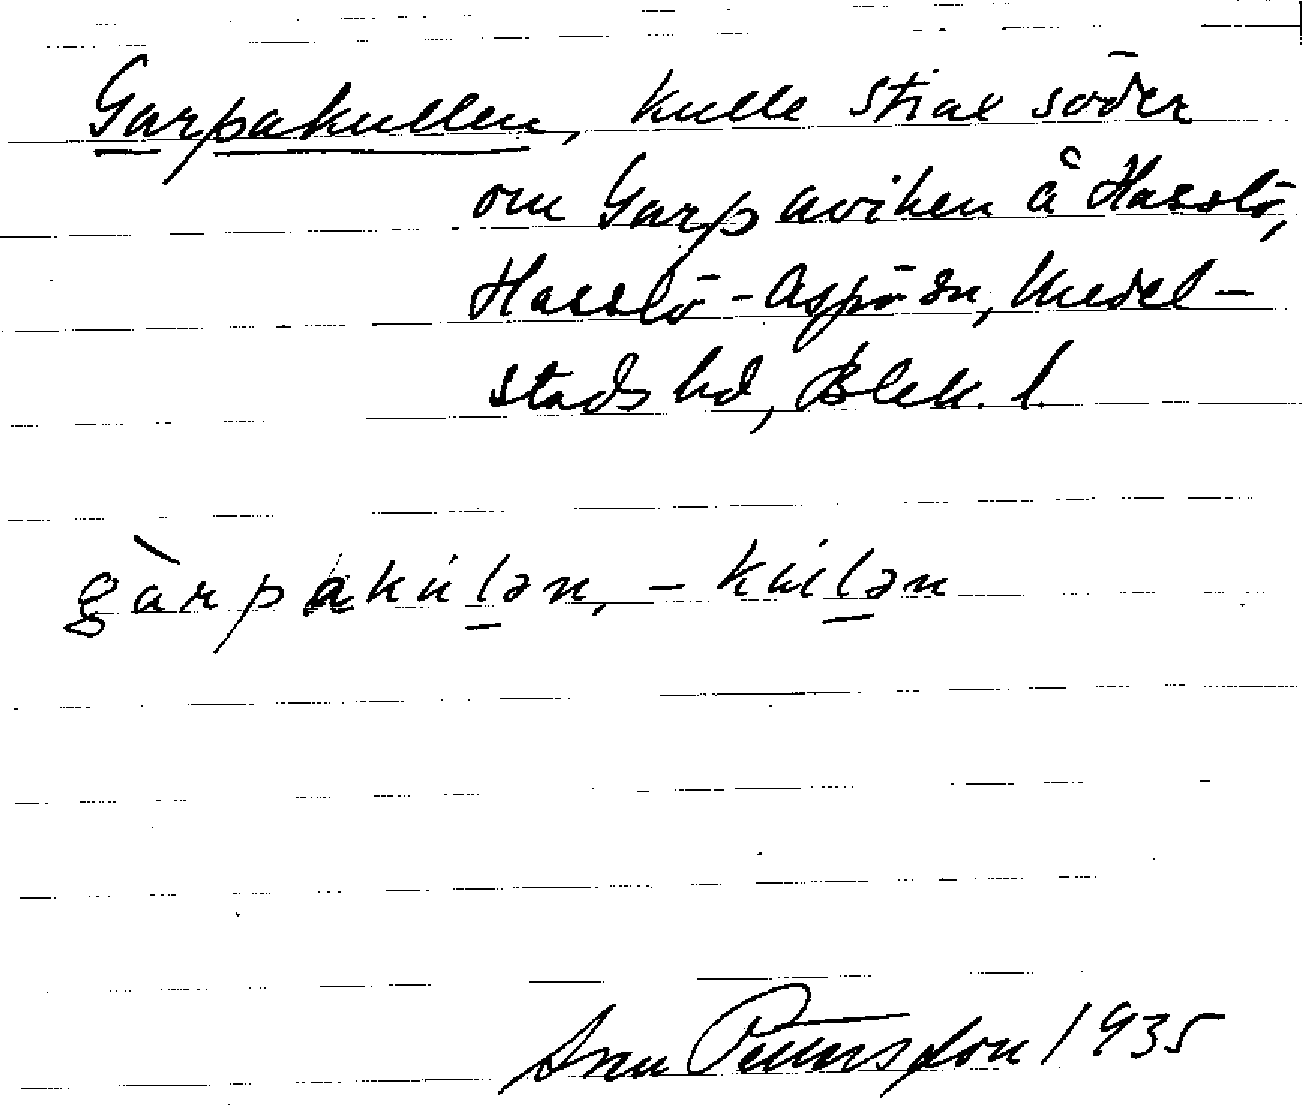 Garpakullen, kulle strax söder
om Garpaviken å Hasslö,
Hasslö-Aspö sn, Medel-
stads hd, Blek. l.
gàrpakúlən, -kúlən
Pettersson 1935